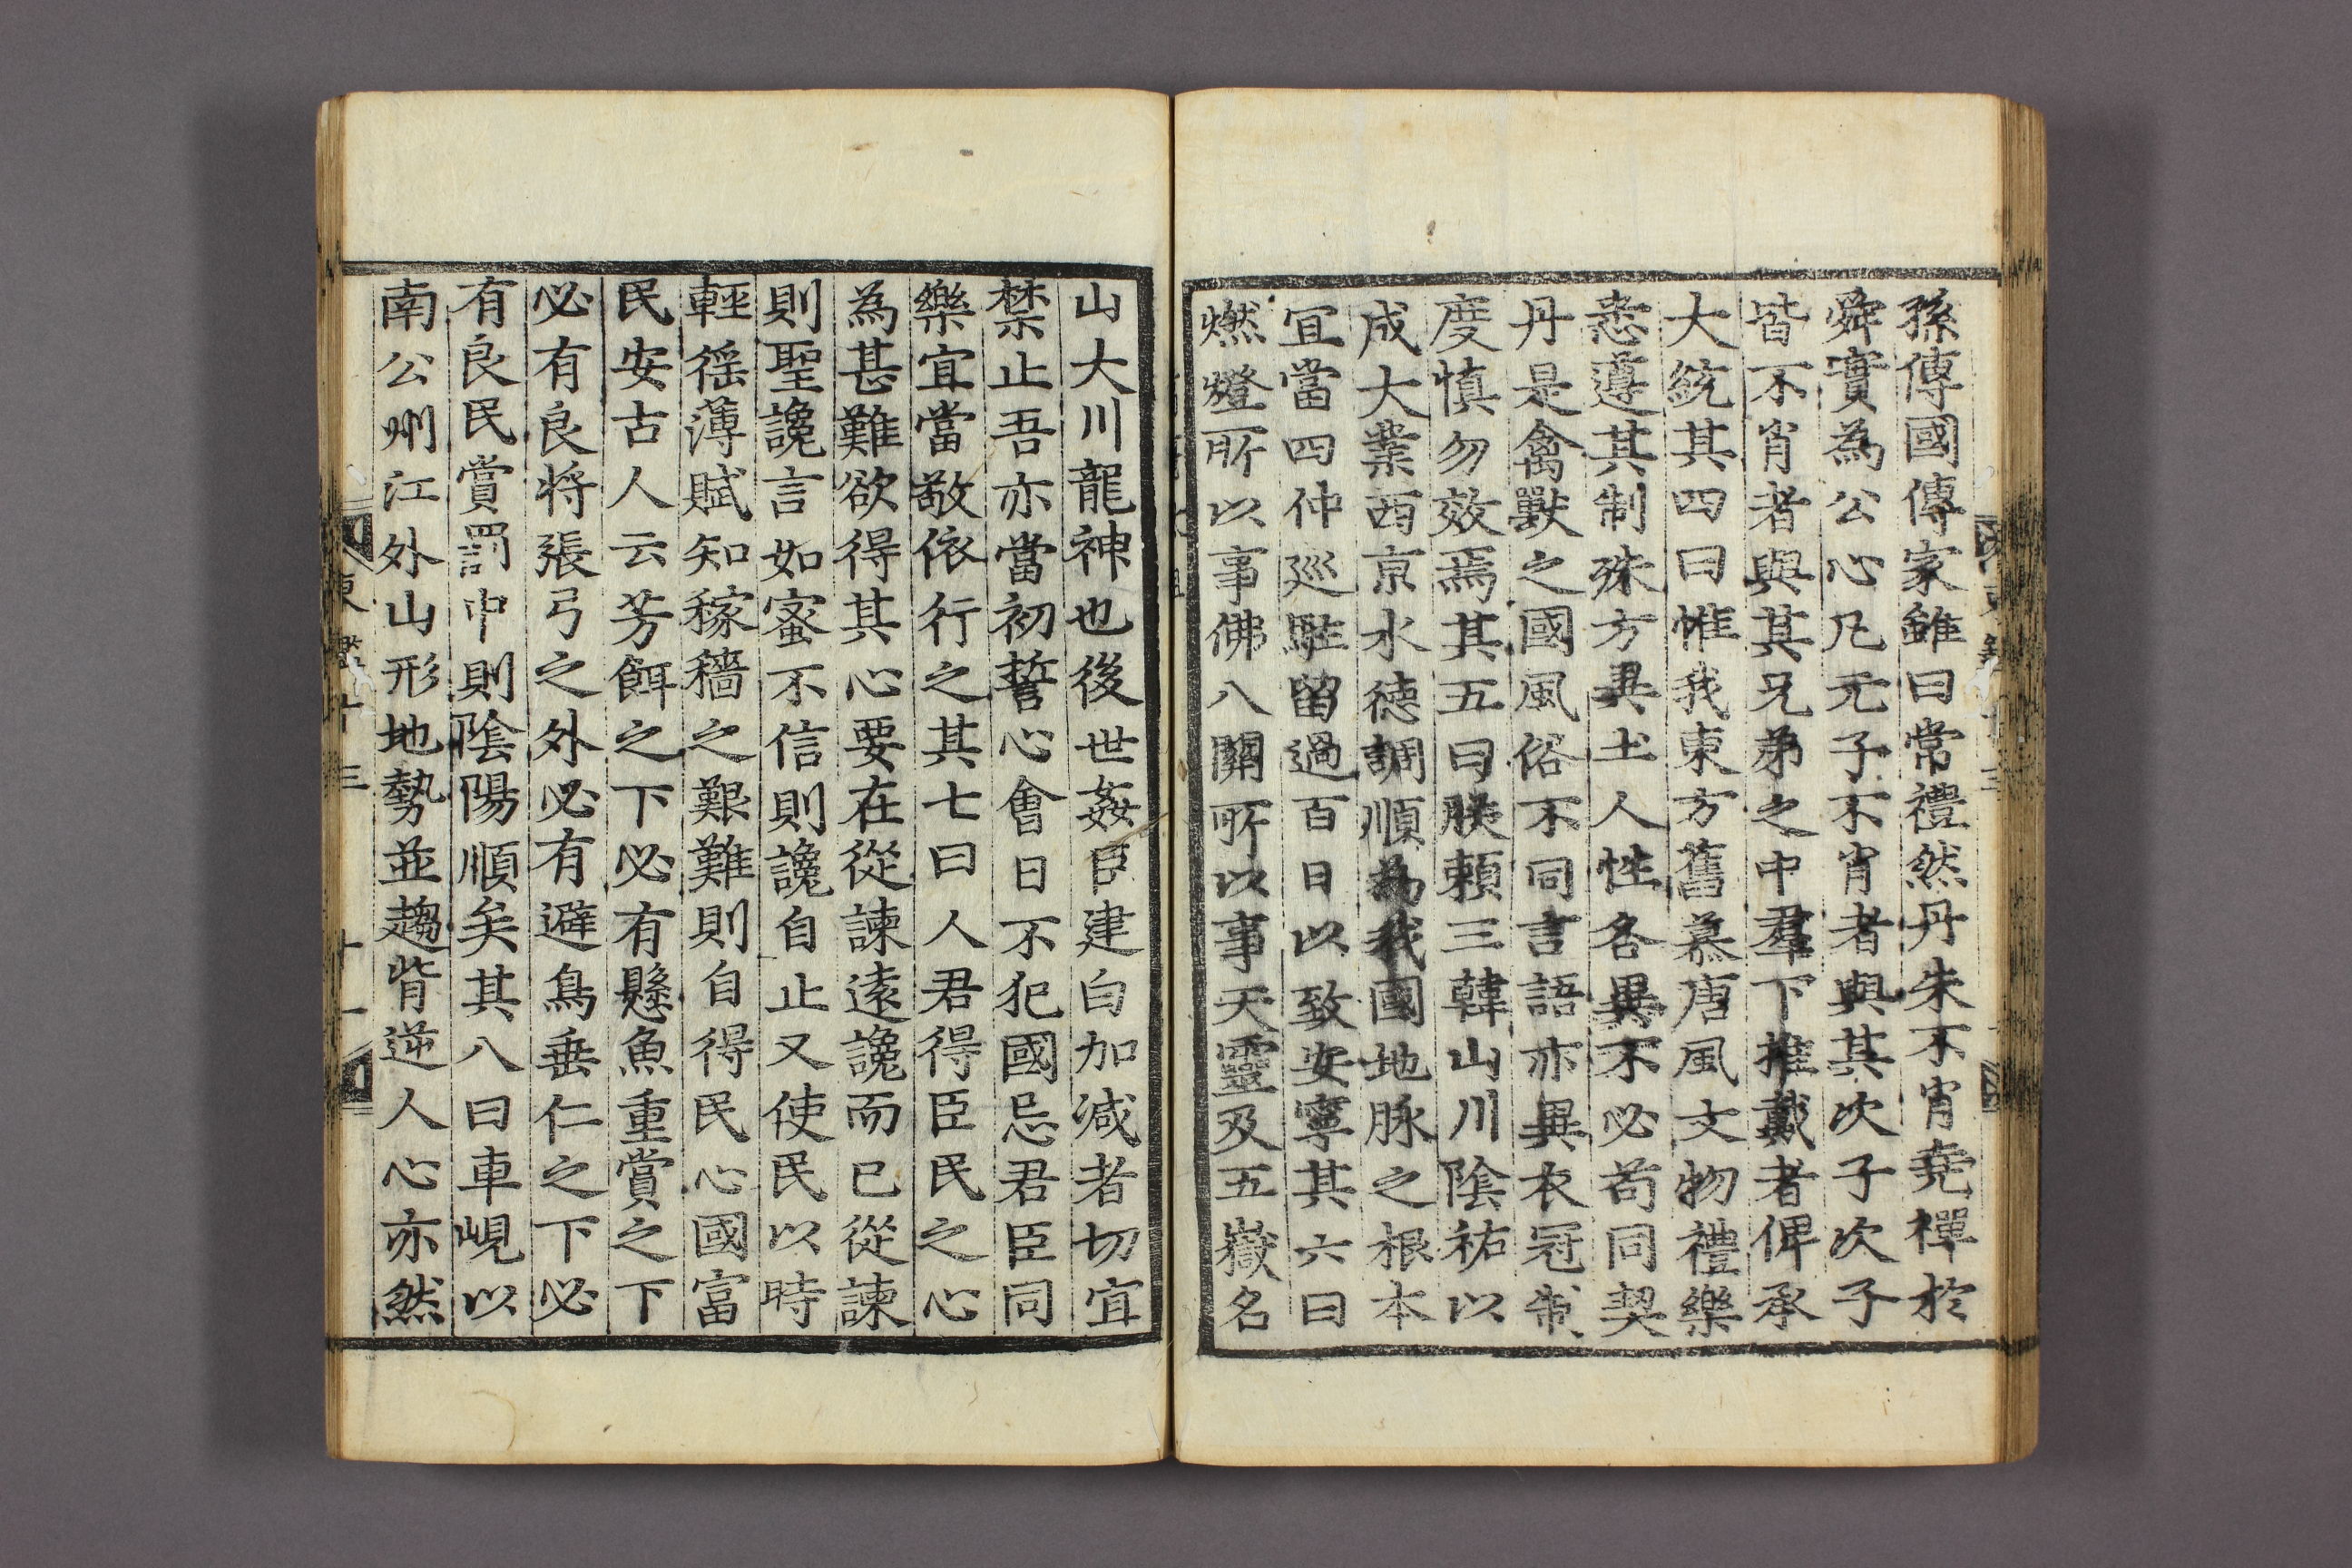 孫傳國傳家雖曰常禮然丹朱不肖堯禪於
舜實為公心凡元子不肖者與其次子次子
皆不肖者與其兄弟之中羣下推戴者俾承
大統其四曰惟我東方舊慕唐風文物禮樂
悉遵其制殊方異土人性各異不必苟同契
丹是禽獸之國風俗不同言語亦異衣冠制
度慎勿效焉其五曰朕賴三韓山川陰祐以
成大業西京水德調順為我國地脉之根本
宜當四仲廵駐留過百日以致安寧其六曰
燃燈所以事佛八關所以事天靈及五嶽名
山大川龍神也後世姦臣建白加减者切宜
禁止吾亦當初誓心會日不犯國忌君臣同
樂宜當敬依行之其七曰人君得臣民之心
為甚難欲得其心要在從諫遠讒而已從諫
則聖讒言如蜜不信則讒自止又使民以時
輕徭薄賦知稼穡之艱難則自得民心國富
民安古人云芳餌之下必有懸魚重賞之下
必有良將張弓之外必有避鳥垂仁之下必
有良民賞罰中則陰陽順矣其八曰車峴以
南公州江外山形地勢並趨背逆人心亦然
東鑑十三
十一